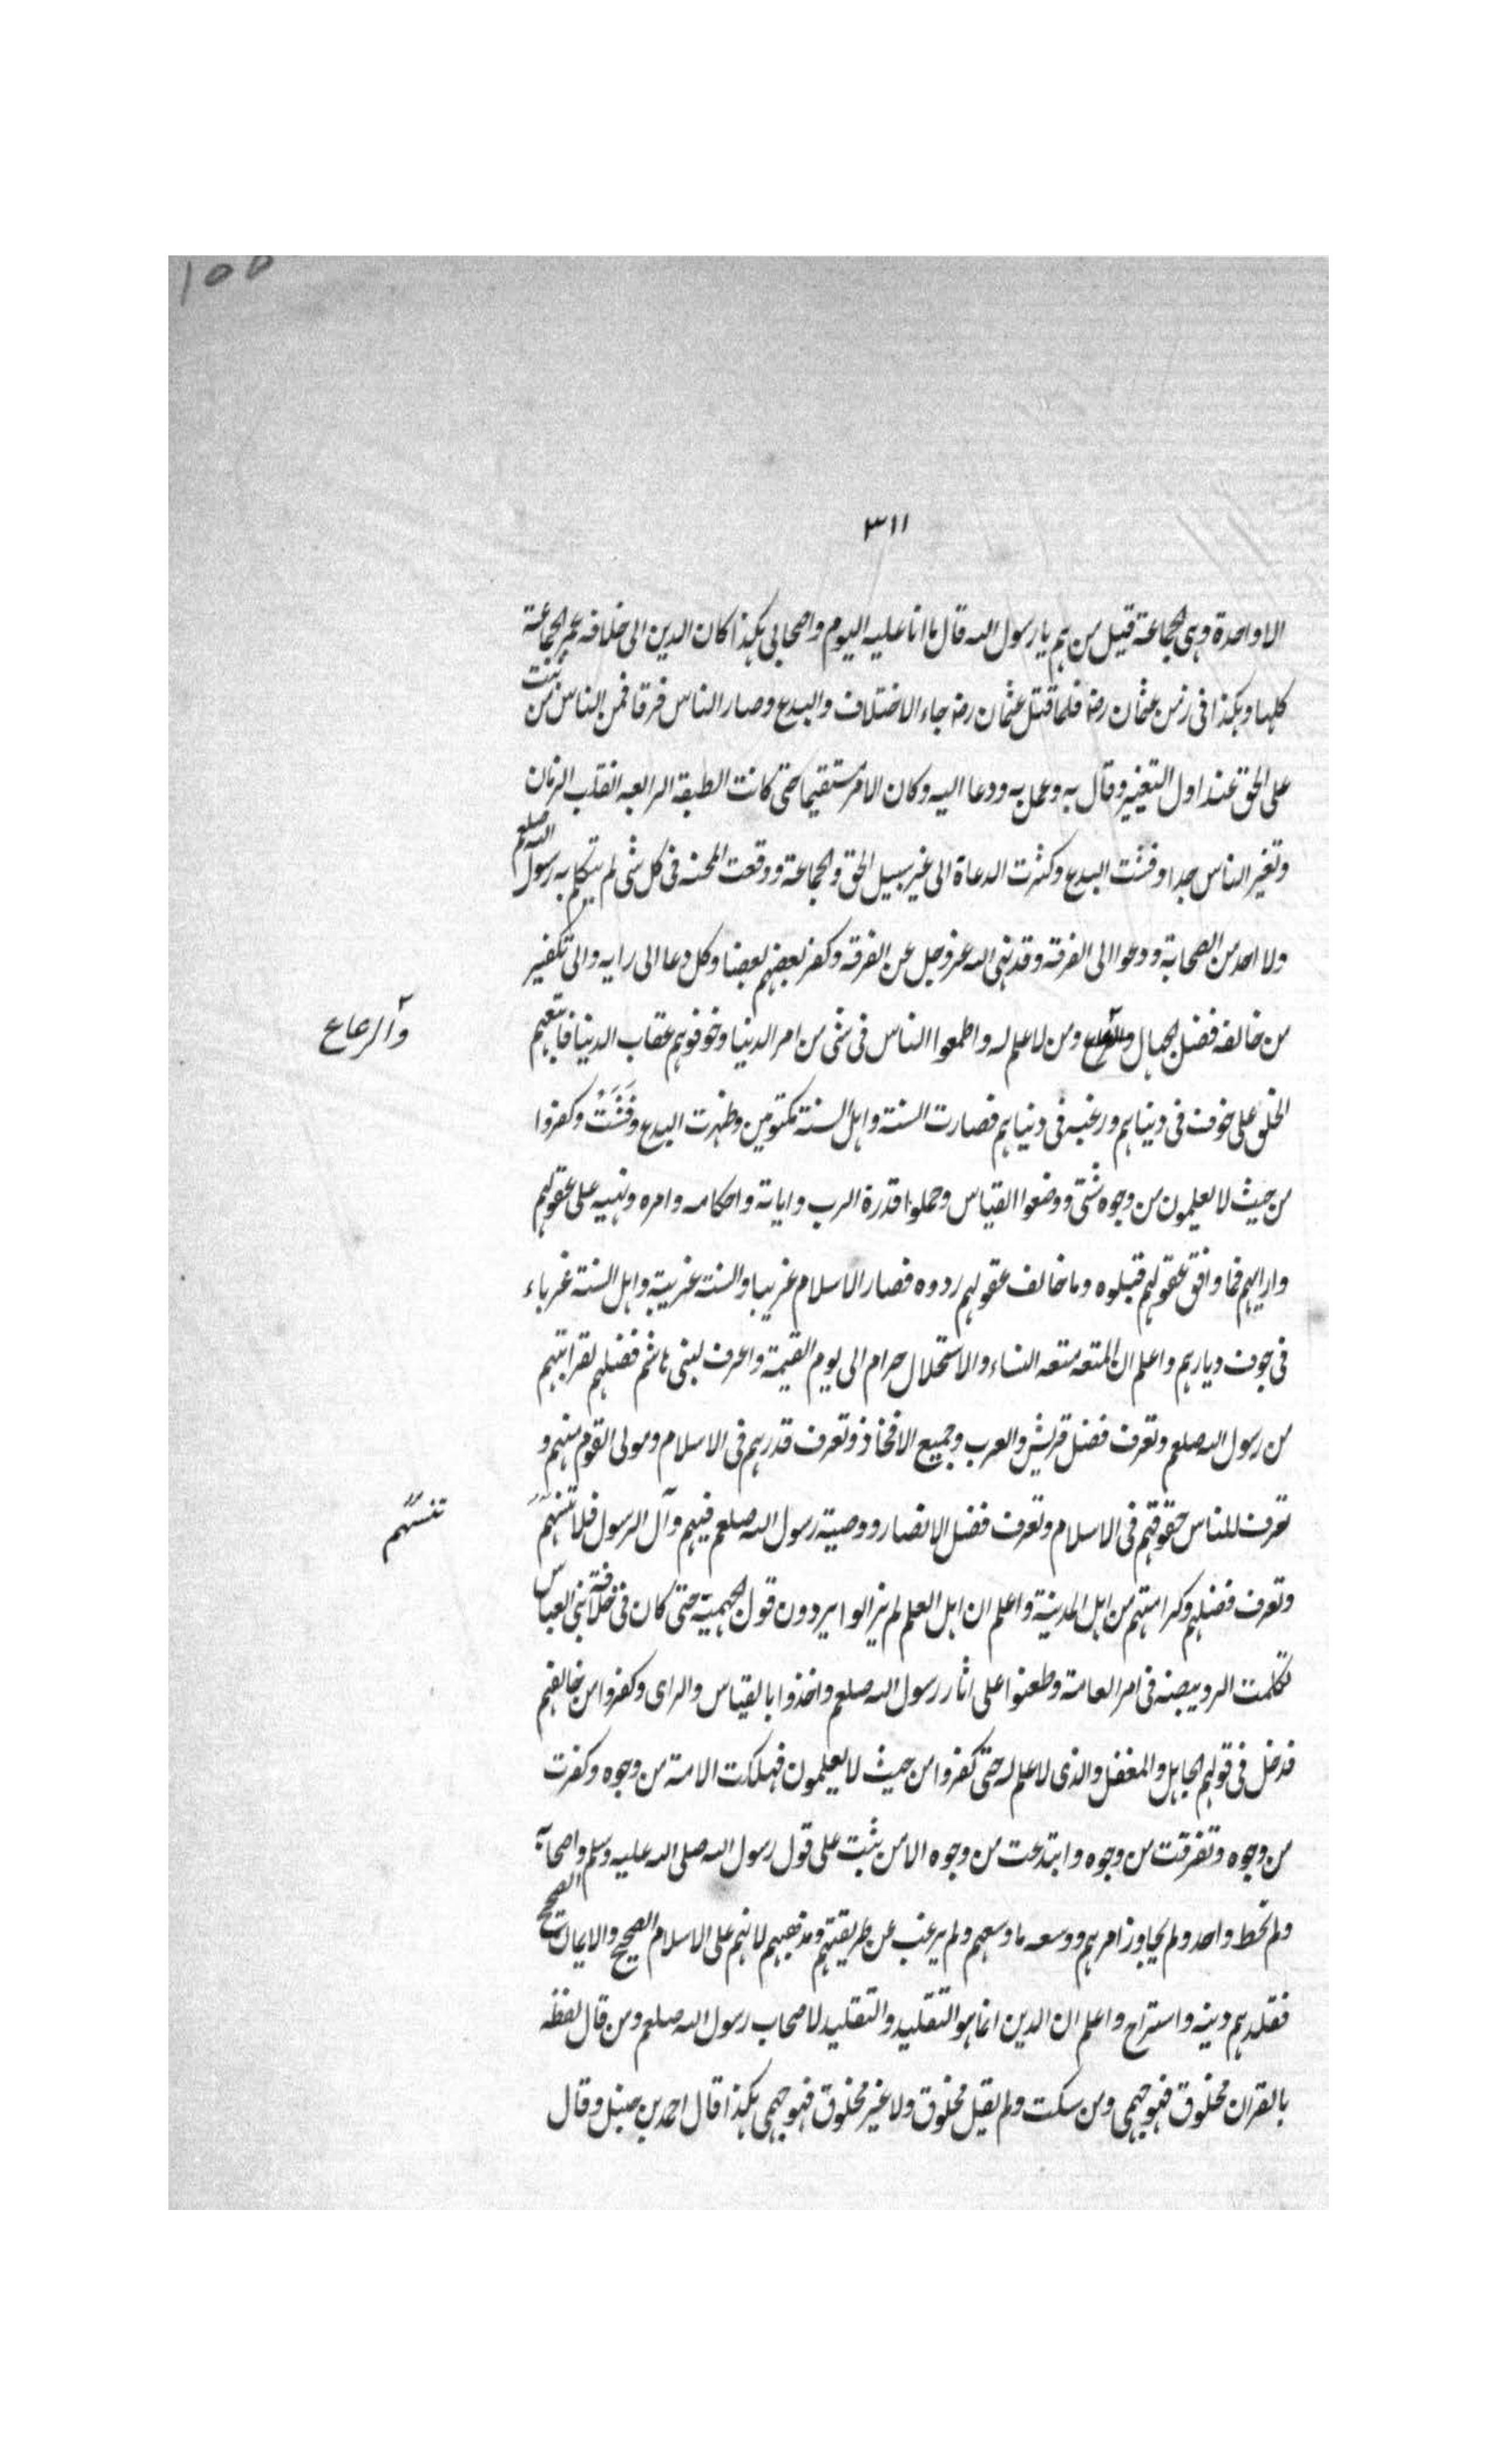 ١٥٥
٣١١
الا واحدة وهى الجماعة قيل من هم يا رسول الله قال ما انا عليه اليوم واصحابى هكذا كان الدين الى خلافة عمر الجماعة
كلها وهكذا فى زمن عثمان رضـ فلما قتل عثمان رضـ جاء الاختلاف والبدع وصار الناس فرقا فمن الناس من ثبت
على الحق عند اول التغيير وقال به وعمل به ودعا اليه وكان الامر مستقيما حتى كانت الطبقة الرابعة انقلب الزمان
وتغير الناس جدا وفشت البدع وكثرت الدعاة الى غير سبيل الحق والجماعة ووقعت المحنة فى كل شى لم يتكلم به رسول الله صلعم
ولا احد من الصحابة ودعوا الى الفرقة وقد نهى الله عز وجل عن الفرقة وكفر بعضهم بعضا وكل دعا الى رايه والى تكفير
من خالفه فضل الجهال والرعاع ومن لا علم له واطمعوا الناس فى شى من امر الدنيا وخوفوهم عقاب الدنيا فاتبعهم
والرعاع
الخلق على خوف فى دنياهم ورغبة فى دنياهم فصارت السنة واهل السنة مكتومين وظهرت البدع وفَشَتْ وكفروا
من حيث لا يعلمون من وجوه شتى ووضعوا القياس وحملوا قدرة الرب واياته واحكامه وامره ونهيه على عقولهم
وارايهم فما وافق عقولهم قبلوه وما خالف عقولهم ردوه فصار الاسلام غريبا والسنة غريبة واهل السنة غرباء
فى جوف ديارهم واعلم ان المتعة متعة النساء والاستحلال حرام الى يوم القيمة واعرف لبنى هاشم فضلهم لقرابتهم
من رسول الله صلعم وتعرف فضل قريش والعرب وجميع الافخاذ وتعرف قدرهم فى الاسلام ومولى القوم منهم و
تعرف للناس حقوقهم فى الاسلام وتعرف فضل الانصار ووصية رسول الله صلعم فيهم وآل الرسول فلا تنسهم
تنسهم
وتعرف فضلهم وكرامتهم من اهل المدينة واعلم ان اهل العلم لم يزالوا يردون قول الجهمية حتى كان فى خلافة بنى العباس
تكلمت الرويبضة فى امر العامة وطعنوا على اثار رسول الله صلعم واخذوا بالقياس والراى وكفروا من خالفهم
فدخل فى قولهم الجاهل والمغفل والذى لا علم له حتى كفروا من حيث لا يعلمون فهلكت الامة من وجوه وكفرت
من وجوه وتفرقت من وجوه وابتدعت من وجوه الا من ثبت على قول رسول الله صلى الله عليه وسلم واصحابه
ولم تخط واحد ولم يجاوز امرهم ووسعه ما وسعهم ولم يرغب عن طريقتهم ومذهبهم لانهم على الاسلام الصحيح والايمان الصحيح
فقلدهم دينه واستراح واعلم ان الدين انما هو التقليد والتقليد لاصحاب رسول الله صلعم ومن قال لفظه
بالقران مخلوق فهو جهمى ومن سكت ولم يقل مخلوق ولا غير مخلوق فهو جهمى هكذا قال احمد بن حنبل وقال